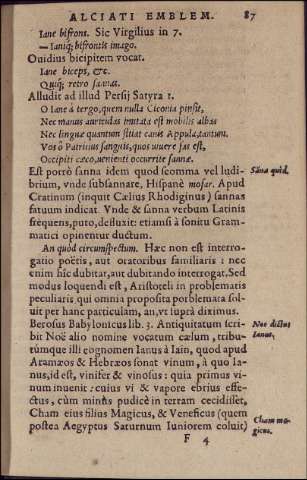 ALCIATI EMBLEM. 87
Iane bifrons. Sic Virgilius in 7.
— Ianiq; bifrontis imago.
Ouidius bicipitem vocat.
Iane biceps, &c.
Quiq; retro
Alludit ad illud Persij Satyra 1.
O Iane á tergo, quem nulla Ciconia pinsit,
Nec manus auriculas imitata est mobilis albas
Nec linguæ quantum sitiat canis Appula, tantum.
Vos ô Patritius sanguis, quos viuere fas est,
Occipiti cæco, uenienti occurrite sannæ.
Est porrò sanna idem quod scomma vel ludi-
brium, vnde subsannare, Hispanè mofar. Apud
Cratinum (inquit Cælius Rhodiginus) sannas
fatuum indicat. Vnde & sanna verbum Latinis
frequens, puto, defluxit: etiamsi à sonitu Gram-
matici opinentur ductum.
Sāna quid.
An quòd circunspectum. Hæc non est interro-
gatio poëtis, aut oratoribus familiaris: nec
enim hîc dubitat, aut dubitando interrogat. Sed
modus loquendi est, Aristoteli in problematis
peculiaris qui omnia proposita porblemata sol-
uit per hanc particulam, an, vt luprà diximus.
Berosus Babylonicus lib. 3. Antiquitatum scri-
bit Noë alio nomine vocatum cælum, tribu-
tùmque illi cognomen Ianus à Iain, quod apud
Aramæos & Hebræos sonat vinum, à quo Ia-
nus, id est, vinifer & vinosus: quia primus vi-
num inuenit: cuius vi & vapore ebrius effe-
ctus, cùm minùs pudicè in terram cecidisset,
Cham eius filius Magicus, & Veneficus (quem
postea Aegyptus Saturnum Iuniorem coluit)
Noe dictus
Ianus.
Cham ma-
gicus.
F 4